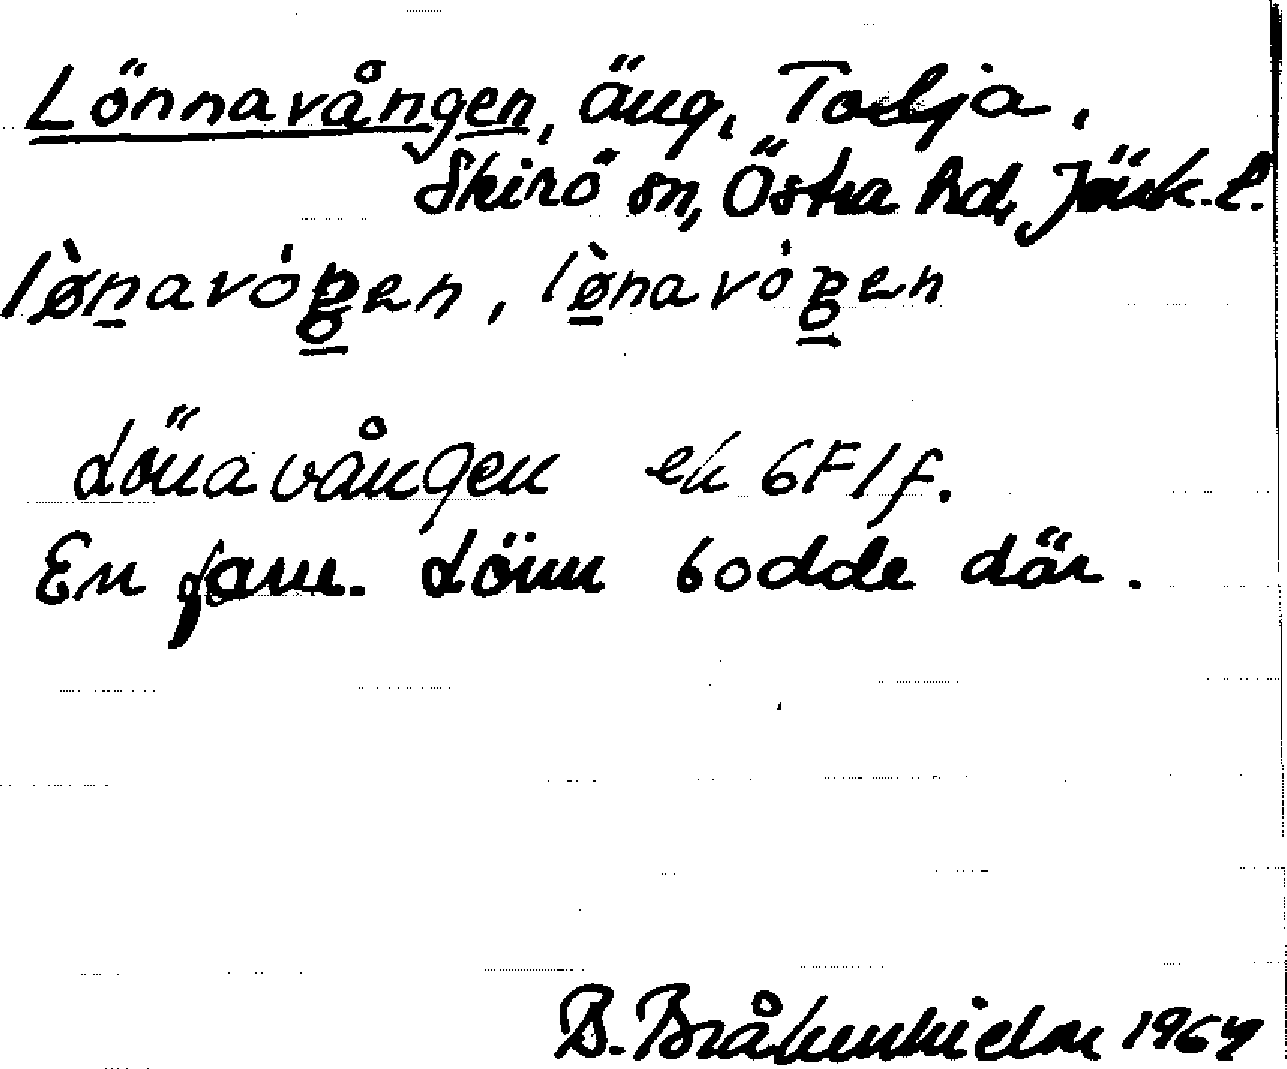 Lönnavången, äng, Tolja,
Skirö sn, Östra hd, Jönk. l.
lø̀navȯgen, lø̀navȯgen
Lönavången ek 6F1f.
En fam. Lönn bodde där.
B. Bråkenhielm 1964